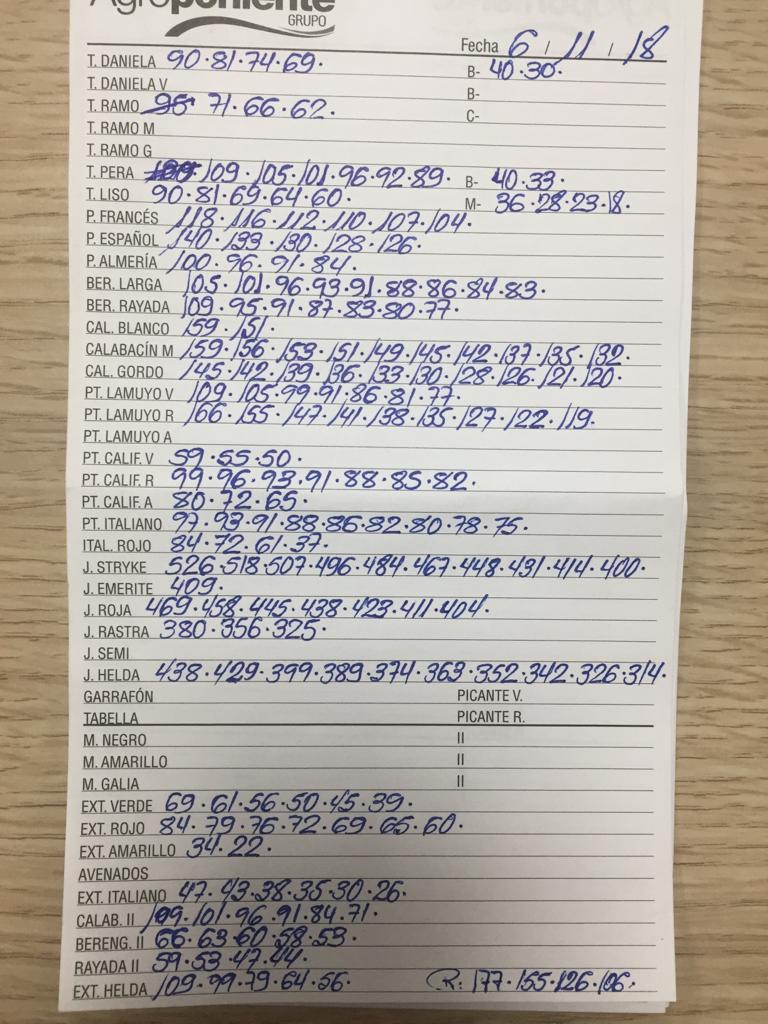 Agroponiente
GRUPO
Fecha 6 / 11 / 18
T. DANIELA 90.81.74.69. B- 40.30.
T. DANIELA V B-
T. RAMO 95 71.66.62. C-
T. RAMO M
T. RAMO G
T. PERA 109.105.101.96.92.89. B- 40.33.
T. LISO 90.81.69.64.60. M- 36.28.23.18.
P. FRANCÉS 118.116.112.110.107.104.
P. ESPAÑOL 140.133.130.128.126.
P. ALMERÍA 100.96.91.84.
BER. LARGA 105.101.96.93.91.88.86.84.83.
BER. RAYADA 109.95.91.87.83.80.77.
CAL. BLANCO 159.151.
CALABACÍN M 159.156.153.151.149.145.142.137.135.132.
CAL. GORDO 145.142.139.136.133.130.128.126.121.120.
PT. LAMUYO V 109.105.99.91.86.81.77.
PT. LAMUYO R 166.155.147.141.138.135.127.122.119.
PT. LAMUYO A
PT. CALIF. V 59.55.50.
PT. CALIF. R 99.96.93.91.88.85.82.
PT. CALIF. A 80.72.65.
PT. ITALIANO 97.93.91.88.86.82.80.78.75.
ITAL. ROJO 84.72.61.37.
J. STRYKE 526.518.507.496.484.467.448.431.414.400.
J. EMERITE 409.
J. ROJA 469.458.445.438.423.411.404.
J. RASTRA 380.356.325.
J. SEMI
J. HELDA 438.429.399.389.374.363.352.342.326.314.
GARRAFÓN PICANTE V.
TABELLA PICANTE R.
M. NEGRO II
M. AMARILLO II
M. GALIA II
EXT. VERDE 69.61.56.50.45.39.
EXT. ROJO 84.79.76.72.69.65.60.
EXT. AMARILLO 34.22.
AVENADOS
EXT. ITALIANO 47.43.38.35.30.26.
CALAB. II 109.101.96.91.84.71.
BERENG. II 66.63.60.58.53.
RAYADA II 59.53.47.44.
EXT. HELDA 109.99.79.64.56. R: 177.155.126.106.